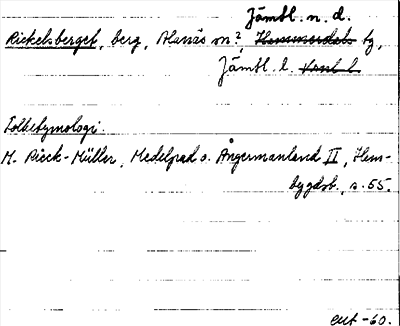 Jämtl. n. d.
Rickelsberget, berg, Alanäs sn?, Hammerdals tg,
Jämtl. l.
Folketymologi.
M. Rieck-Müller, Medelpad o. Ångermanland II, Hem-
bygdsb., s. 55.
-60.